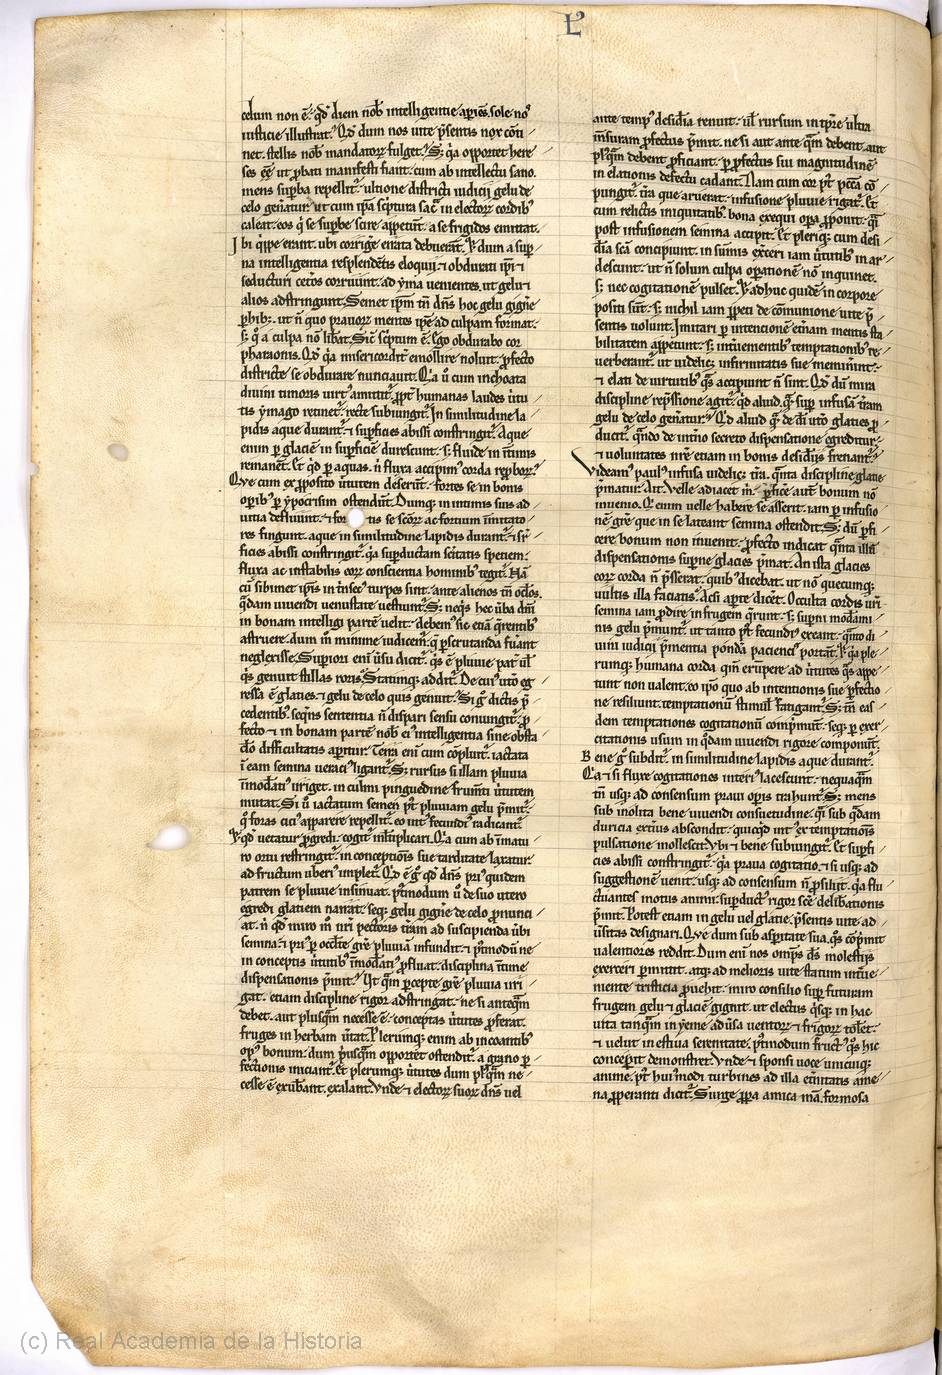 L
celum non ē. qd' diem nob̄ intelligentie apiēs. sole nos
iusticie illustrat. Qd' dum nos uite p̄sentis nox cōti
net. stellis nob̄ mandatorꝝ fulget. S; q̄a oportet here
ses eē ut p̄bati manifesti fiant. cum ab intellectu sano.
mens supba repellit. ultione districti iudicii gelu de
celo gen̄atur. ut cum ipsa sc̄ptura sac̄ in electorꝝ cordib;
caleat. eos q̄ se supbe scire appetunt. a se frigidos emittat.
Ibi q̄ppe errant. ubi corriḡe errata debuerāt. Et dum a sup
na intelligentia resplendētis eloquii. ⁊ obdurati ip̄i ⁊
seducturi cet̄os corruunt. ad yma uenientes. ut gelu ⁊
alios adstringunt. Semet ip̄m tn̄ dn̄s hoc gelu gign̄e
phib;. ut n̄ quo prauorꝝ mentes ipse ad culpam format.
s; q̄ a culpa nō lib̄at. Sic̄ sc̄ptum ē. Ego obdurabo cor
pharaonis. Qd' q̄a misericordit̄ emollire noluit. p̄fecto
districte se obdurare nunciauit. Q̄a u̇ cum inchoata
diuini timoris uirt' amittit. ppt' humanas laudes uirtu
tis ymago retinet. recte subiungit. In similitudine la
pidis aque durant. ⁊ supficies abissi constringit. Aque
enim p glaciē in supficie durescunt. s; fluide in ītimis
remanēt. Et qd' p aquas. n̄ fluxa accipim' corda repborꝝ.
Que cum ex pposito uirtutem deserūt. fortes se in bonis
opib; p ypocrisim ostendūt. Dumq; in intimis suis ad
uitia defluunt. ⁊ for tis se scorꝝ ac fortium imitato
res fingunt. aque in similitudine lapidis durant. ⁊ su
ficies abissi constringit. q̄a supductam sc̄itatis speciem.
fluxa ac instabilis eorꝝ conscientia hominib; tegit. Nā
cū sibimet ipsis intr̄insec' turpes sint. ante alienos tn̄ oclos.
q̄dam uiuendi uenustate uestiunt. S; neq̄s hec u̇ba dn̄i
in bonam intelligi partē uelit. debem' sic etiā q̄rentib;
astruere. dum in̄ minime iudicem. q̄ pscrutanda fuant
neglexisse. Supiori eni u̇su dicit. q̄s ē pluuie pat̄ ul'
q̄s genuit stillas roris. Statimq; addit. De cui' utō eg
ressa ē glaties. ⁊ gelu de celo quis genuit. Si g̊ dictis p̄
cedentib; seqn̄s sententia n̄ dispari sensu coniungit. p
fecto ⁊ in bonam partē nob̄ ei' intelligentia sine obsta
clo difficultatis apitur. Terra eni cum cōpluit. iactata
ī eam semina uerac' ligant. S; rursus si illam pluuia
īmod̄ati' irriget. in culmi pinguedine frum̄ti uirtutem
mutat. Si u̇ iactatum semen p' pluuiam gelu p̄mit.
q̊ foras citi' apparere repellit. eo int' fecundi' radicant.
Et q̊ uetatur pgredi. cogit multiplicari. Q̄a cum ab īmatu
ro ortu restringit. in conceptiōis sue tarditate laxatur.
ad fructum uberi' implet. Qd' ē g̊ qd' dn̄s pri' quidem
patrem se pluuie insinuat. p'modum u̇ de suo utero
egredi glatiem narrat. seq; gelu gign̄e de celo pnunci
at. n̄ qd' miro mō nr̄i pectoris t̄ram ad suscipienda u̇bi
semina. ⁊ pri' p occl̄te gre pluuiā infundit. ⁊ p'modū ne
in conceptis uirtutib; īmod̄ati' pfluat. disciplina int̄ne
dispensationis p̄mit. Ut q̄m pcepte gre pluuia irri
gat. etiam discipline rigor adstringat. ne si anteq̄m
debet. aut plusq̄m necesse ē. conceptas uirtutes pferat.
fruges in herbam u̇tat. Plerumq; enim ab incoantib;
op' bonum. dum p'usq̄m oportet ostendit. a grano p
fectionis inanit. et plerumq; uirtutes dum pl'q̄m ne
cesse ē exub̄ant. exalant. Unde ⁊ electorꝝ suorꝝ dn̄s uel
ante temp' desid̄ia renuit. ul' rursum in tpre ultra
m̄suram pfectus p̄mit. ne si aut ante q̄m debent. aut
pl'q̄m debent pficiant. p pfectus sui magnitudinē
in elationis defectu cadant. Nam cum cor p' pcc̄a cō
pungit. t̄ra que aruerat. infusione pluuie rigat. Et
cum relictis iniquitatib; bona exequi opa pponit. q̄i
post infusionem semina accipit. Et pleriq; cum desi
d̄ia sc̄a concipiunt. in sūmis ex̄ceri iam uirtutib; in ar
descunt. ut n̄ solum culpa opationē nō inquinet.
s; nec cogitationē pulset. Et adhuc quidē in corpore
positi sūt. s; nichil iam ppeti de cōmunione uite p̄
sentis uolunt. Imitari p intencionē et̄nam mentis sta
bilitatem appetunt. s; int̄uenientib; temptationib; re
uerberant. ut uidelic; infirmitatis sue memin̄int.
⁊ elati de uirtutib; q̄s accipiunt n̄ sint. Qd' dū mira
discipline repssione agit. qd' aliud. q̄ sup infusā t̄ram
gelu de celo gen̄atur. Qd' aliud q̄ de d̄i utō glaties p
ducit. q̄ndo de int̄no secreto dispensatione egreditur.
⁊ uoluntates nr̄e etiam in bonis desid̄iis frenant.
Videam' paul' infusa uidelic; t̄ra. q̄nta discipline glatie
p̄matur. Ait. Velle adiacet m̄. pfic̄e aut̄ bonum nō
inuenio. Q enim uelle habere se asserit. iam p infusio
nē gre que in se lateant semina ostendit. S; dū pfi
cere bonum non inuenit. pfecto indicat q̄nta illū
dispensationis supne glacies p̄mat. An ista glacies
eorꝝ corda n̄ p̄sserat. quib; dicebat. ut nō quecumq;
uultis illa faciatis. Acsi apte dic̄et. Occulta cordis uri
semina iam pdire in frugem q̄runt. s; supni mod̄ami
nis gelu p̄munt. ut tanto p' fecundi' exeant. q̄nto di
uini iudicii p̄mentia pond̄a pacienci' portāt. Et q̄a ple
rumq; humana corda q̄m erūpere ad uirtutes q̄s appe
tunt non ualent. eo ip̄o quo ab intentionis sue pfectio
ne resiliunt. temptationū stimul' fatigant. S; tn̄ eas
dem temptationes cogitationū comp̄munt. seq; p exer
citationis usum in q̄dam uiuendi rigore componūt.
Bene g̊ subdit. in similitudine lapidis aque durant.
Q̄a ⁊ si fluxe cogitationes interi' lacescunt. nequaq̄m
tn̄ usq; ad consensum praui opis trahunt. S; mens
sub inolita bene uiuendi consuetudine. q̄i sub q̄dam
duricia exteri' abscondit. quicqd' int' ex temptatiōis
pulsatione mollescit. Vbi ⁊ bene subiungit. Et supfi
cies abissi constringit. q̄a praua cogitatio. ⁊ si usq; ad
suggestionē uenit. usq; ad consensum n̄ psilit. q̄a flu
ctuantes motus animi. supduct' rigor sc̄e delib̄ationis
p̄mit. Potest etiam in gelu uel glatie. p̄sentis uite ad
u̇sitas designari. Que dum sub aspitate sua. q̄s cōp̄mit
ualentiores reddit. Dum eni nos omps d̄s molestiis
exerceri pmittit. atq; ad melioris uite statum int̄ue
mente tristicia puehit. miro consilio sup futuram
frugem gelu ⁊ glaciē gignit. ut electus q̄sq; in hac
uita tanq̄m in yeme adu̇sa uentorꝝ ⁊ frigorꝝ tol̄et.
⁊ uelut in estiua serenitate. p'modum fruct' q̄s hic
concepit demonstret. Vnde ⁊ sponsi uoce unicuiq;
anime. p' hui'modi turbines ad illa et̄nitatis ame
na ppperanti dicit. Surge ppa amica mea. formosa
(c) Real Academia de la Historia